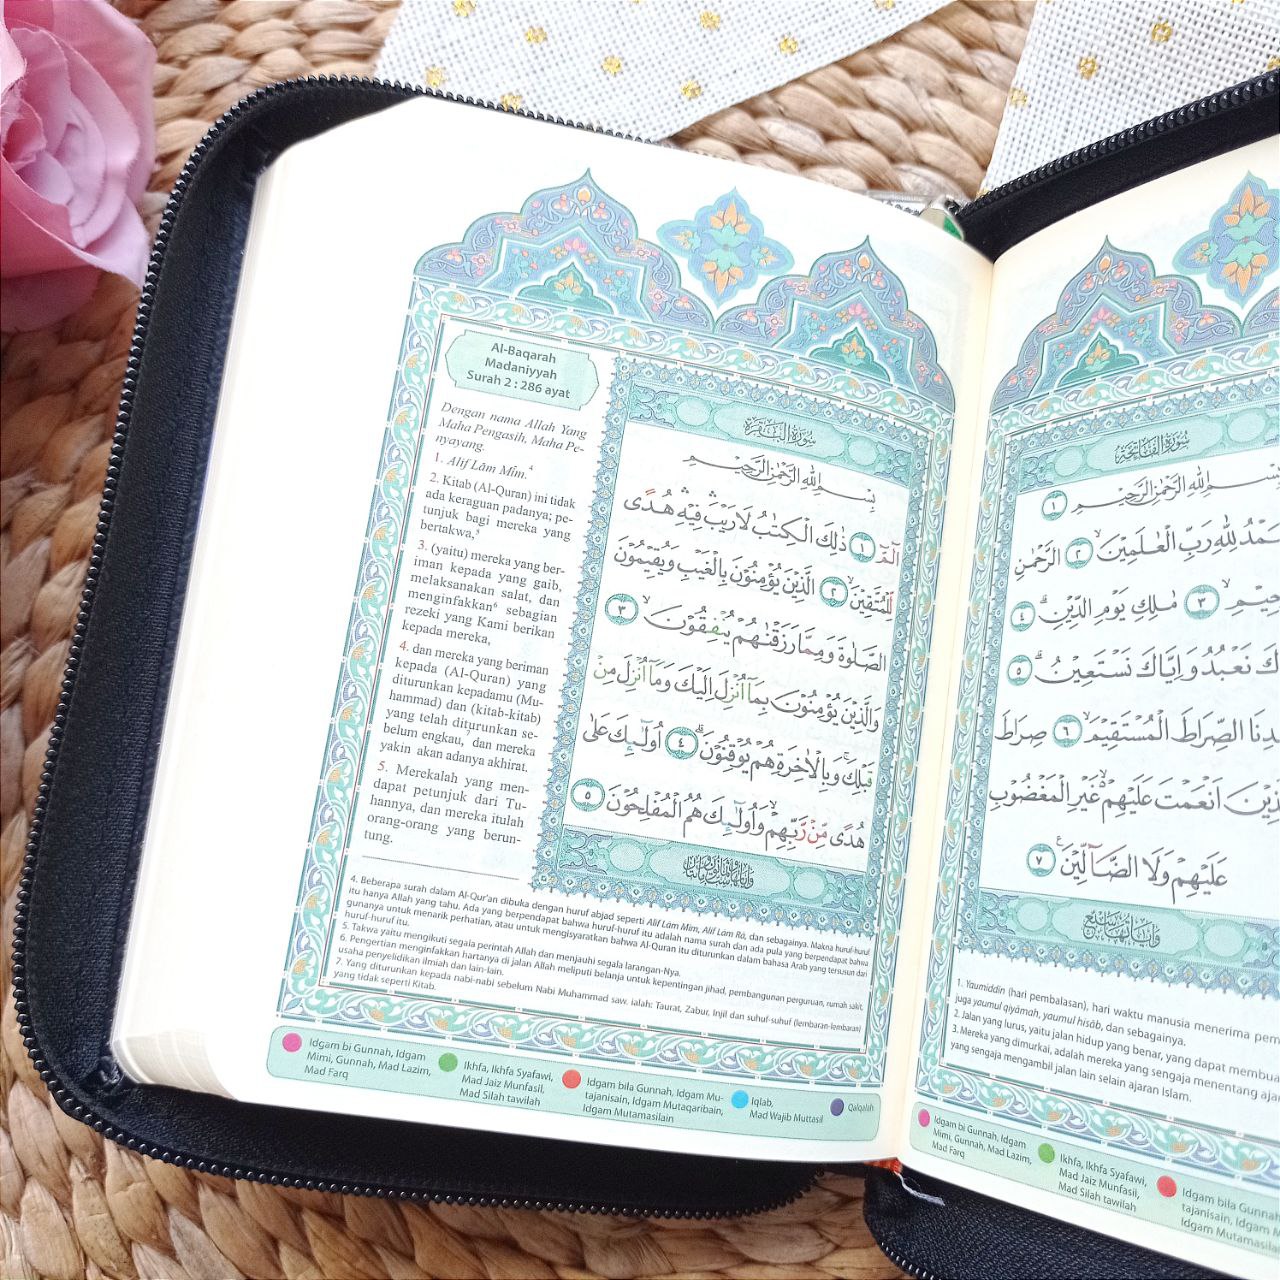 Al-Baqarah
Madaniyyah
Surah 2 : 286 ayat
Dengan nama Allah Yang
Maha Pengasih, Maha Pe-
nyayang.
1. Alif Lām Mīm.⁴
2. Kitab (Al-Quran) ini tidak
ada keraguan padanya; pe-
tunjuk bagi mereka yang
bertakwa,⁵
3. (yaitu) mereka yang ber-
iman kepada yang gaib,
melaksanakan salat, dan
menginfakkan⁶ sebagian
rezeki yang Kami berikan
kepada mereka,
4. dan mereka yang beriman
kepada (Al-Quran) yang
diturunkan kepadamu (Mu-
hammad) dan (kitab-kitab)
yang telah diturunkan se-
belum engkau,⁷ dan mereka
yakin akan adanya akhirat.
5. Merekalah yang men-
dapat petunjuk dari Tu-
hannya, dan mereka itulah
orang-orang yang berun-
tung.
سُورَةُ الْبَقَرَةِ
بِسْمِ اللّٰهِ الرَّحْمٰنِ الرَّحِيْمِ
الۤمّۤ ۝١ ذٰلِكَ الْكِتٰبُ لَا رَيْبَ ۛ فِيْهِ ۛ هُدًى
لِّلْمُتَّقِيْنَۙ ۝٢ الَّذِيْنَ يُؤْمِنُوْنَ بِالْغَيْبِ وَيُقِيْمُوْنَ
الصَّلٰوةَ وَمِمَّا رَزَقْنٰهُمْ يُنْفِقُوْنَۙ ۝٣
وَالَّذِيْنَ يُؤْمِنُوْنَ بِمَآ اُنْزِلَ اِلَيْكَ وَمَآ اُنْزِلَ مِنْ
قَبْلِكَۚ وَبِالْاٰخِرَةِ هُمْ يُوْقِنُوْنَۗ ۝٤ اُولٰۤىِٕكَ عَلٰى
هُدًى مِّنْ رَّبِّهِمْۙ وَاُولٰۤىِٕكَ هُمُ الْمُفْلِحُوْنَ ۝٥
4. Beberapa surah dalam Al-Qur'an dibuka dengan huruf abjad seperti Alif Lām Mīm, Alif Lām Rā, dan sebagainya. Makna huruf-huruf
itu hanya Allah yang tahu. Ada yang berpendapat bahwa huruf-huruf itu adalah nama surah dan ada pula yang berpendapat bahwa
gunanya untuk menarik perhatian, atau untuk mengisyaratkan bahwa Al-Quran itu diturunkan dalam bahasa Arab yang tersusun dari
huruf-huruf itu.
5. Takwa yaitu mengikuti segala perintah Allah dan menjauhi segala larangan-Nya.
6. Pengertian menginfakkan hartanya di jalan Allah meliputi belanja untuk kepentingan jihad, pembangunan perguruan, rumah sakit,
usaha penyelidikan ilmiah dan lain-lain.
7. Yang diturunkan kepada nabi-nabi sebelum Nabi Muhammad saw. ialah: Taurat, Zabur, Injil dan suhuf-suhuf (lembaran-lembaran)
yang tidak seperti Kitab.
Idgam bi Gunnah, Idgam
Mimi, Gunnah, Mad Lazim,
Mad Farq
Ikhfa, Ikhfa Syafawi,
Mad Jaiz Munfasil,
Mad Silah tawilah
Idgam bila Gunnah, Idgam Mu-
tajanisain, Idgam Mutaqaribain,
Idgam Mutamasilain
Iqlab,
Mad Wajib Muttasil
Qalqalah
سُورَةُ الْفَاتِحَةِ
بِسْمِ اللّٰهِ الرَّحْمٰنِ الرَّحِيْمِ ۝١
ـحَمْدُ لِلّٰهِ رَبِّ الْعٰلَمِيْنَۙ ۝٢ الرَّحْمٰنِ
ـحِيْمِۙ ۝٣ مٰلِكِ يَوْمِ الدِّيْنِۗ ۝٤
ـكَ نَعْبُدُ وَاِيَّاكَ نَسْتَعِيْنُۗ ۝٥
ـدِنَا الصِّرَاطَ الْمُسْتَقِيْمَۙ ۝٦ صِرَاطَ
ـذِيْنَ اَنْعَمْتَ عَلَيْهِمْ ەۙ غَيْرِ الْمَغْضُوْبِ
عَلَيْهِمْ وَلَا الضَّاۤلِّيْنَ ۝٧
1. Yaumiddin (hari pembalasan), hari waktu manusia menerima pem
juga yaumul qiyāmah, yaumul hisāb, dan sebagainya.
2. Jalan yang lurus, yaitu jalan hidup yang benar, yang dapat membua
3. Mereka yang dimurkai, adalah mereka yang sengaja menentang aja
yang sengaja mengambil jalan lain selain ajaran Islam.
Idgam bi Gunnah, Idgam
Mimi, Gunnah, Mad Lazim,
Mad Farq
Ikhfa, Ikhfa Syafawi,
Mad Jaiz Munfasil,
Mad Silah tawilah
Idgam bila Gunnah
tajanisain, Idgam M
Idgam Mutamasila